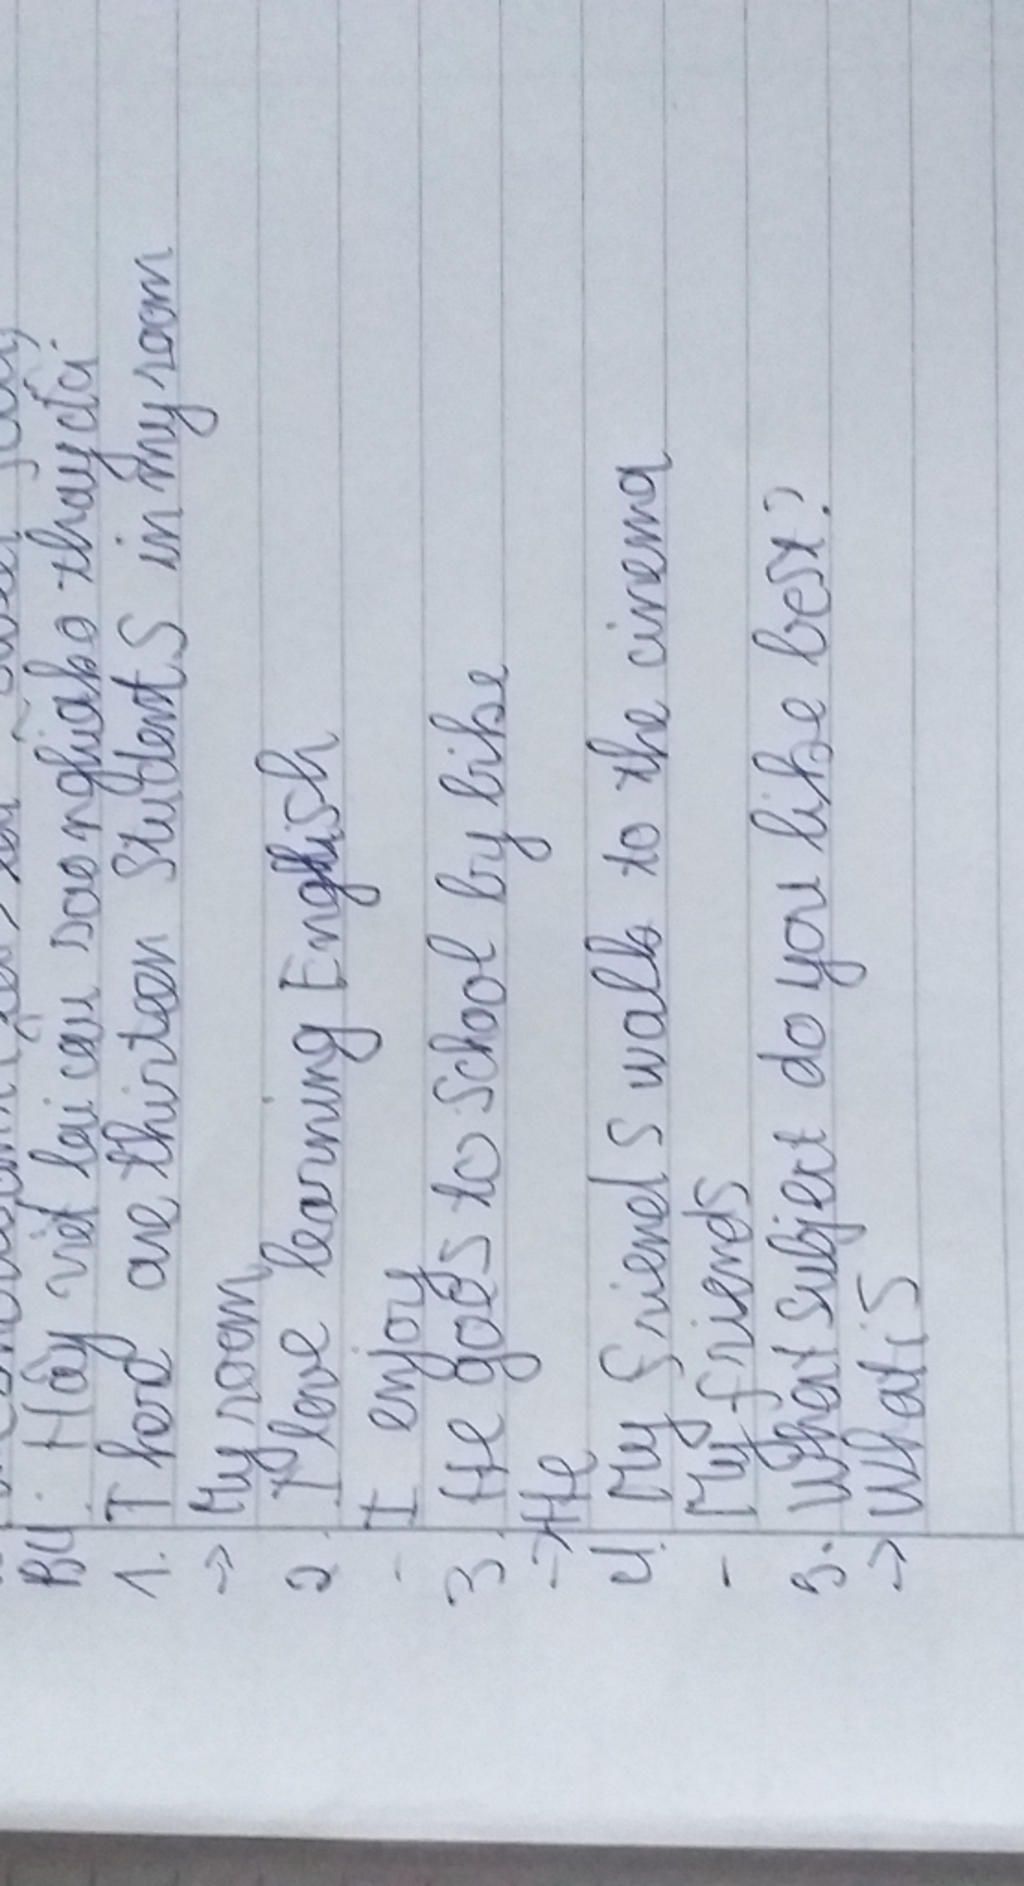 B4. Hãy viết lại câu sao nghĩa ko thay đổi
1. There are thirteen students in my room
-> My room
2. I love learning English
- I enjoy
3. He goes to school by bike
-> He
4. My friends walk to the cinema
- My friends
3. What subject do you like best?
-> What is